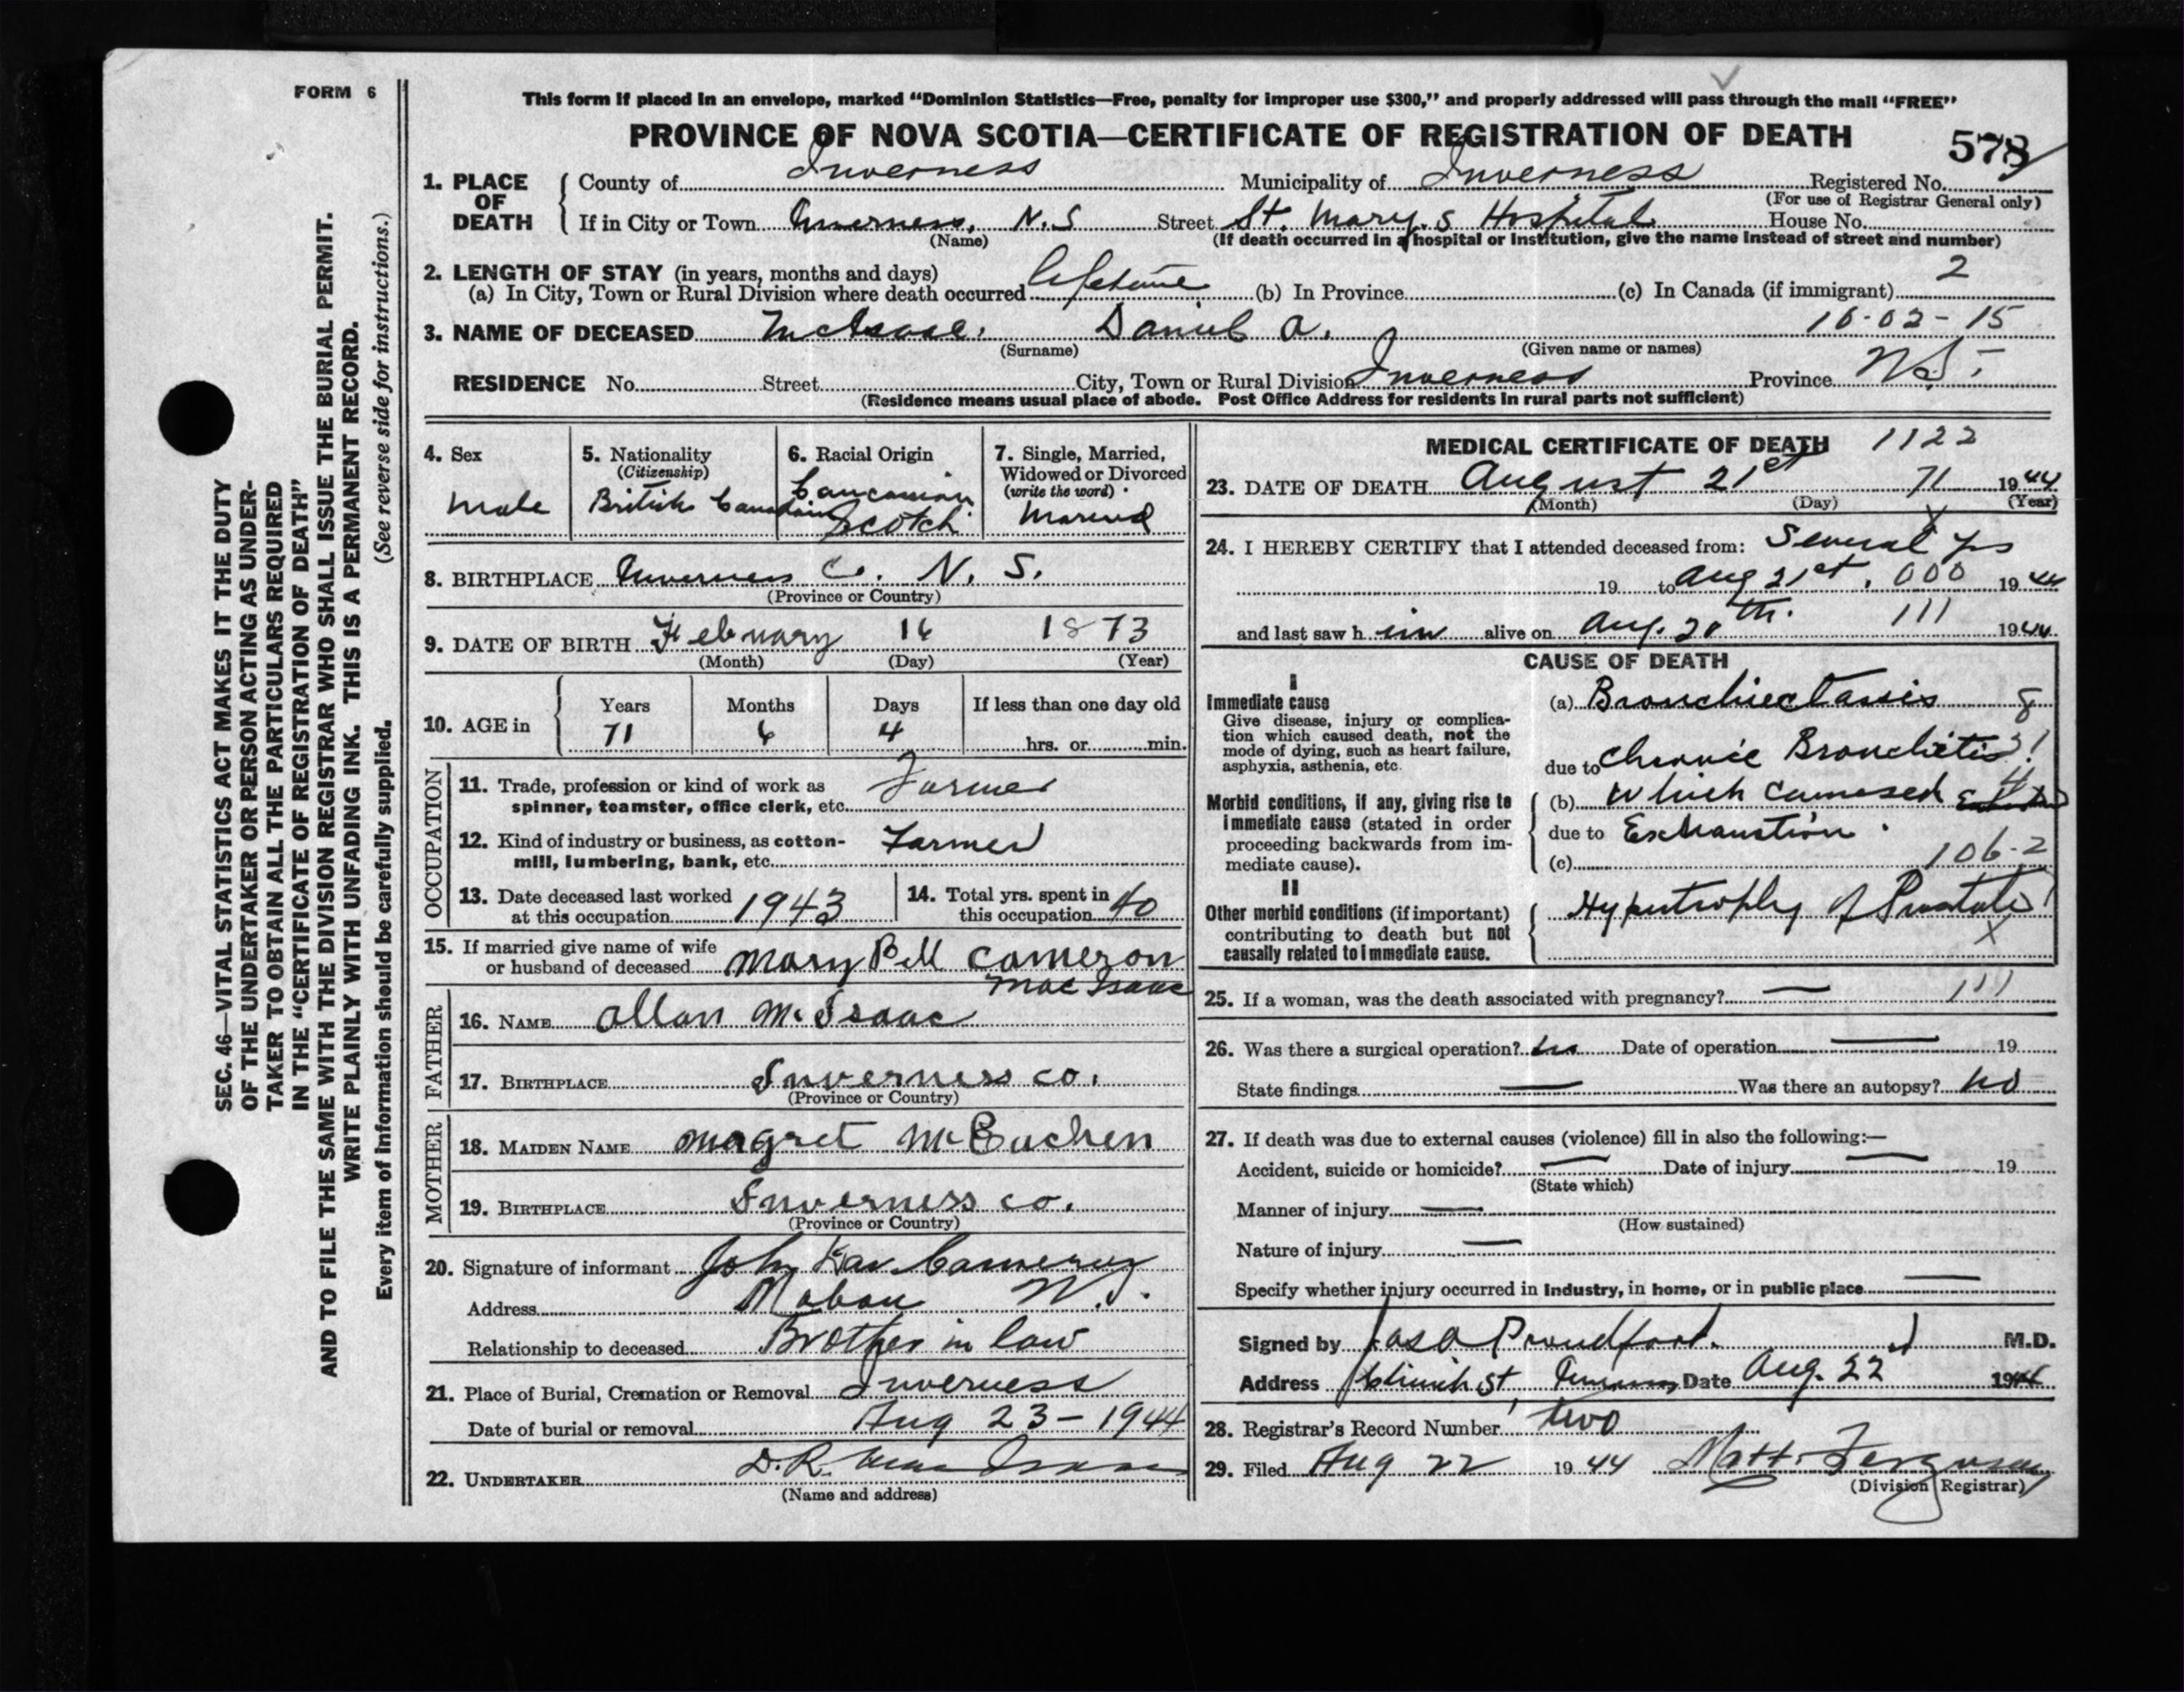 FORM 6
This form if placed in an envelope, marked "Dominion Statistics—Free, penalty for improper use $300," and properly addressed will pass through the mail "FREE"
PROVINCE OF NOVA SCOTIA—CERTIFICATE OF REGISTRATION OF DEATH
578
SEC. 46—VITAL STATISTICS ACT MAKES IT THE DUTY
OF THE UNDERTAKER OR PERSON ACTING AS UNDER-
TAKER TO OBTAIN ALL THE PARTICULARS REQUIRED
IN THE "CERTIFICATE OF REGISTRATION OF DEATH"
AND TO FILE THE SAME WITH THE DIVISION REGISTRAR WHO SHALL ISSUE THE BURIAL PERMIT.
WRITE PLAINLY WITH UNFADING INK. THIS IS A PERMANENT RECORD.
Every item of information should be carefully supplied. (See reverse side for instructions.)
1. PLACE OF DEATH
County of Inverness Municipality of Inverness Registered No.
(For use of Registrar General only)
If in City or Town Inverness, N.S Street St. Mary,s Hospital House No.
(Name) (If death occurred in a hospital or institution, give the name instead of street and number)
2. LENGTH OF STAY (in years, months and days) 2
(a) In City, Town or Rural Division where death occurred lifetime (b) In Province (c) In Canada (if immigrant)
3. NAME OF DECEASED McIsaac. Daniel A. 10-02-15
(Surname) (Given name or names)
RESIDENCE No. Street City, Town or Rural Division Inverness Province N.S.
(Residence means usual place of abode. Post Office Address for residents in rural parts not sufficient)
4. Sex
Male
5. Nationality
(Citizenship)
British Canadian
6. Racial Origin
Caucasian
Scotch
7. Single, Married,
Widowed or Divorced
(write the word)
Married
8. BIRTHPLACE Inverness Co. N. S.
(Province or Country)
9. DATE OF BIRTH February 16 1873
(Month) (Day) (Year)
10. AGE in
Years Months Days If less than one day old
71 6 4 hrs. or min.
OCCUPATION
11. Trade, profession or kind of work as
spinner, teamster, office clerk, etc. Farmer
12. Kind of industry or business, as cotton-
mill, lumbering, bank, etc. Farmer
13. Date deceased last worked
at this occupation 1943
14. Total yrs. spent in
this occupation 40
15. If married give name of wife
or husband of deceased Mary Bell Cameron
MacIsaac
FATHER
16. NAME Allan McIsaac
17. BIRTHPLACE Inverness co.
(Province or Country)
MOTHER
18. MAIDEN NAME Magret McEachen
19. BIRTHPLACE Inverness co.
(Province or Country)
20. Signature of informant John Cameron
Address Mabou N.S.
Relationship to deceased Brother in law
21. Place of Burial, Cremation or Removal Inverness
Date of burial or removal Aug 23-1944
22. UNDERTAKER D.R. MacIsaac
(Name and address)
MEDICAL CERTIFICATE OF DEATH 1122
23. DATE OF DEATH August 21st 71 1944
(Month) (Day) (Year)
24. I HEREBY CERTIFY that I attended deceased from: Several yrs
19 to Aug 21st. 000 1944
and last saw h im alive on Aug. 20th. 111 1944
CAUSE OF DEATH
I
Immediate cause
Give disease, injury or complica-
tion which caused death, not the
mode of dying, such as heart failure,
asphyxia, asthenia, etc.
(a) Bronchiectasis 8
due to Chronic Bronchitis
Morbid conditions, if any, giving rise to
immediate cause (stated in order
proceeding backwards from im-
mediate cause).
(b) Which caused
due to Exhaustion.
(c) 106-2
II
Other morbid conditions (if important)
contributing to death but not
causally related to immediate cause.
Hypertrophy of Prostate
X
25. If a woman, was the death associated with pregnancy? — 111
26. Was there a surgical operation? no Date of operation — 19
State findings — Was there an autopsy? no
27. If death was due to external causes (violence) fill in also the following:—
Accident, suicide or homicide? — Date of injury — 19
(State which)
Manner of injury —
(How sustained)
Nature of injury —
Specify whether injury occurred in industry, in home, or in public place —
Signed by Proudfoot. M.D.
Address Church St, Inverness Date Aug. 22d 1944
28. Registrar's Record Number two
29. Filed Aug 22 1944 Matt. Ferguson
(Division Registrar)